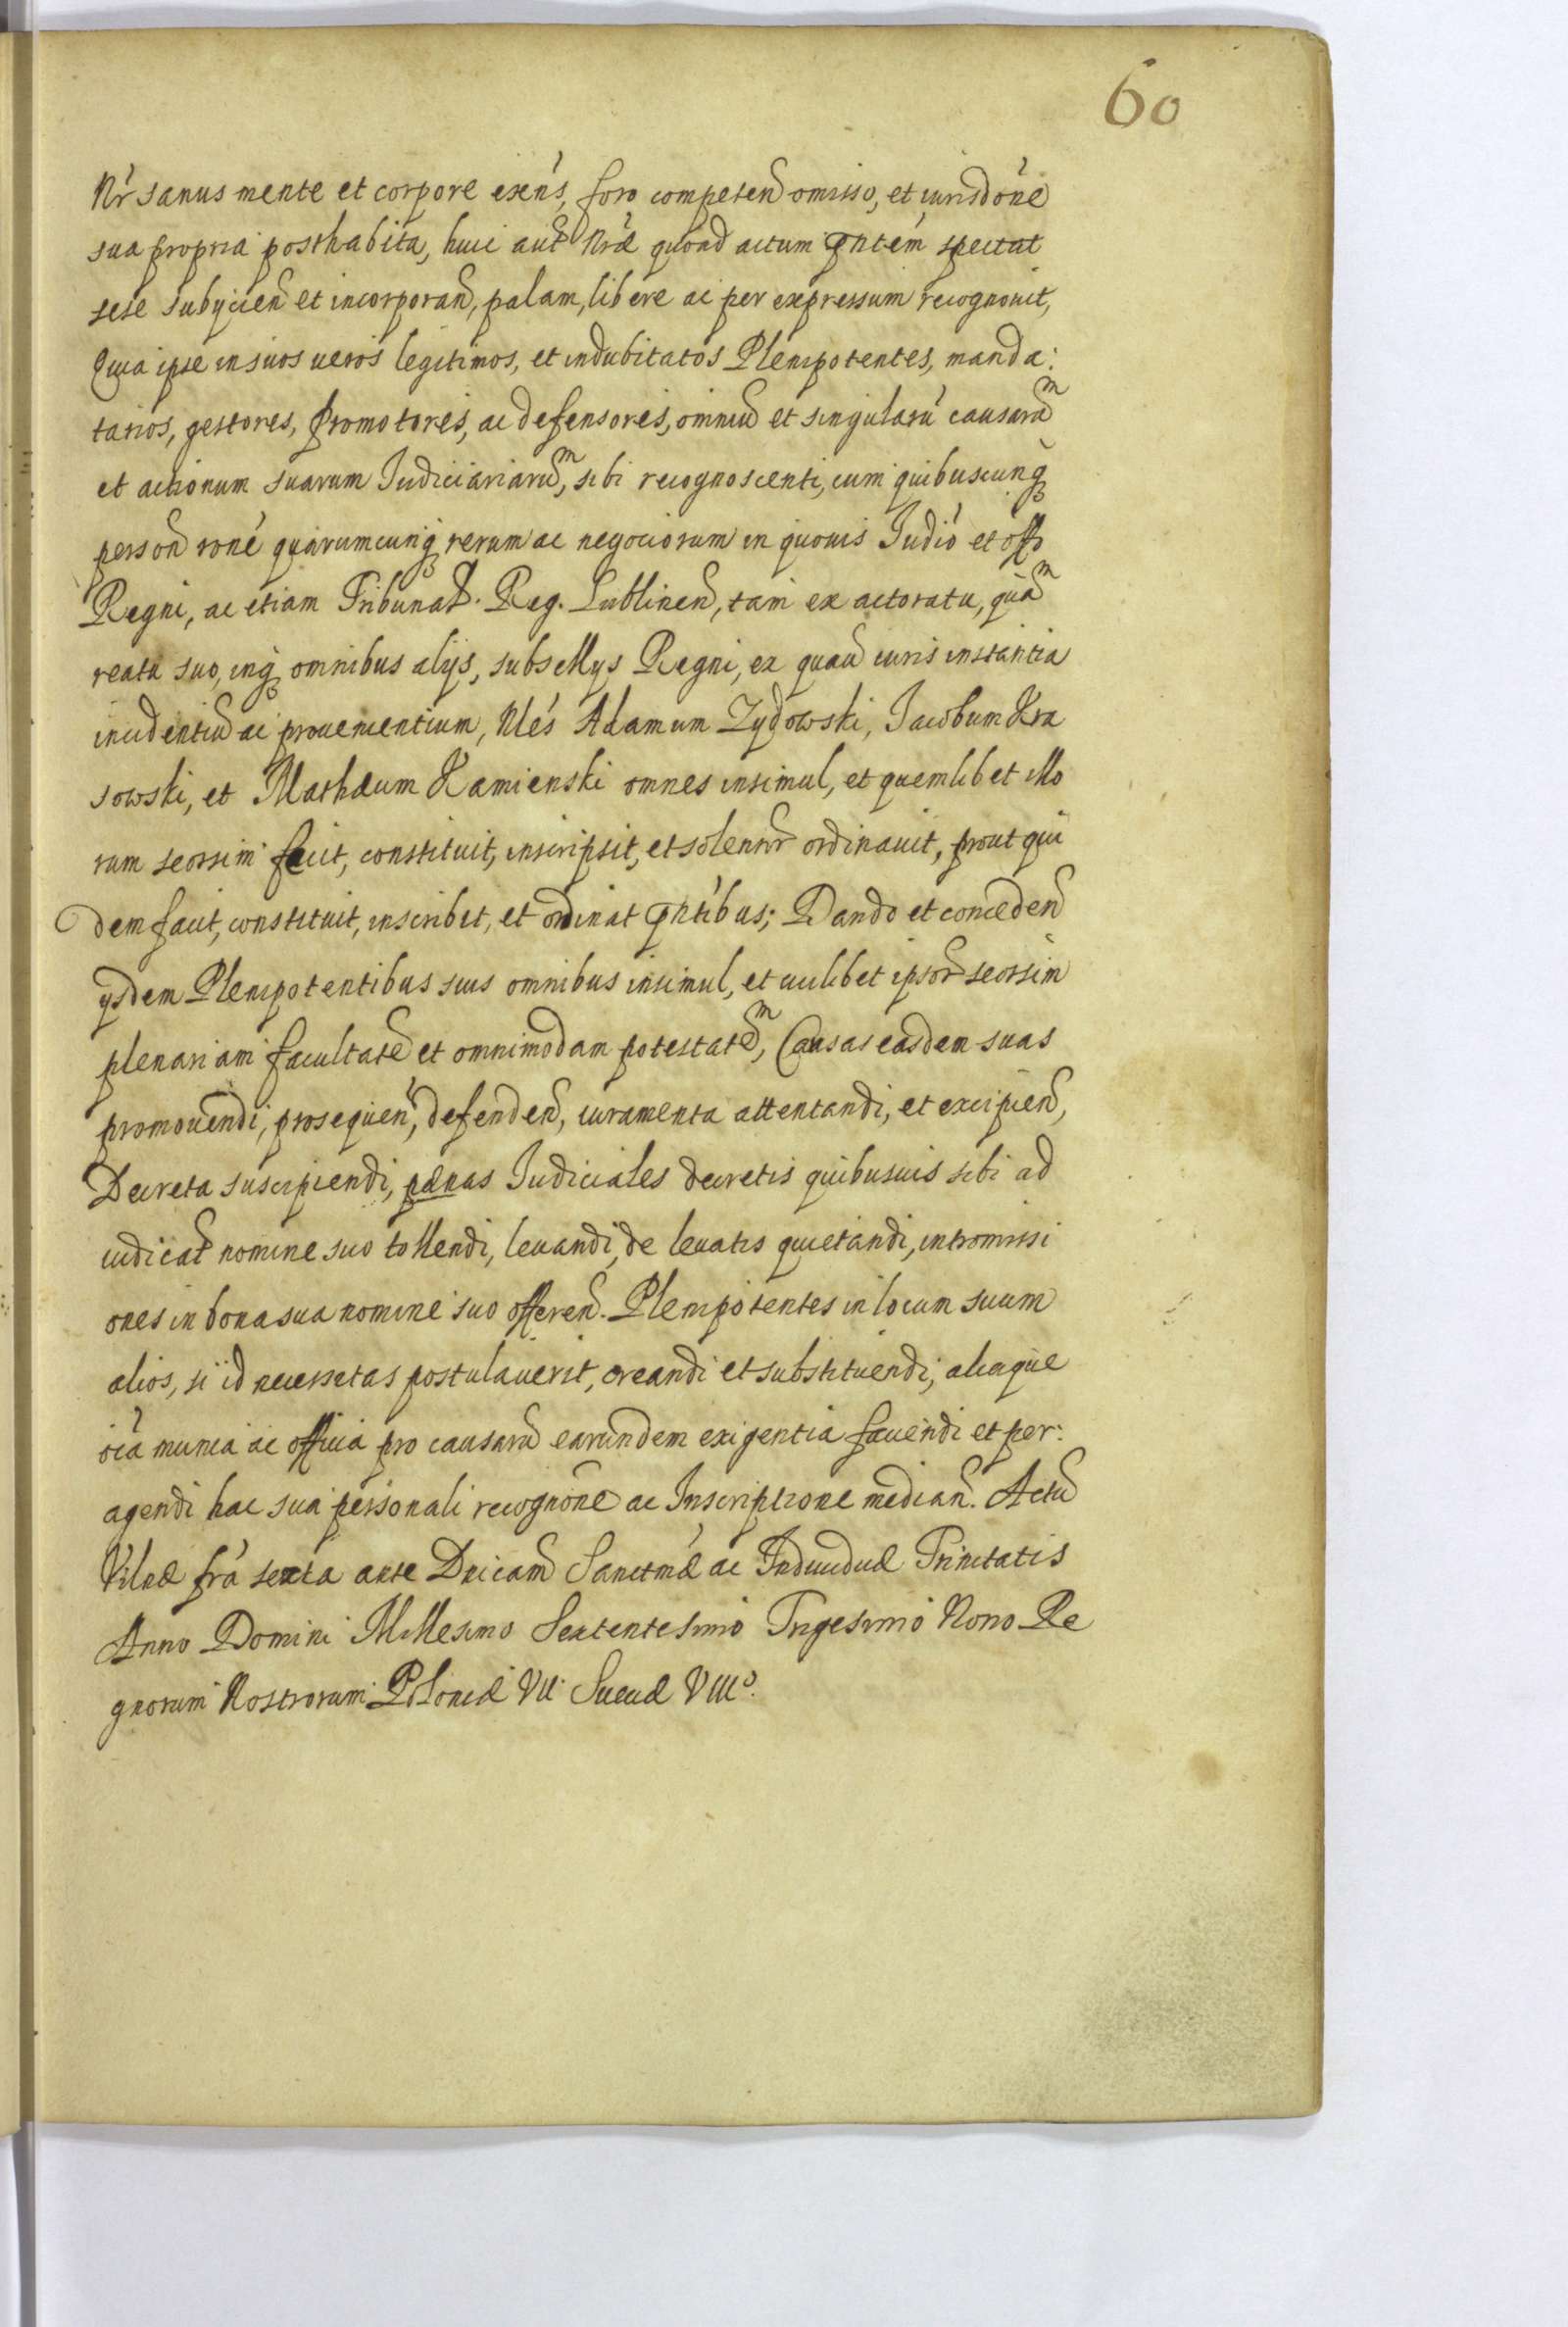 60
Nr̃ sanus mente et corpore exẽns, foro competeñ omisso, et iurisdõne
sua propria posthabita, huic aut̃ Nrae quoad actum pñtem spectat
sese subÿcieñ et incorporañ, palam, libere ac per expressum recognouit,
Quia ipse in suos ueros legitimos, et indubitatos Plenipotentes, manda:
tarios, gestores, promotores, ac defensores, omniũ et singularũ causarũm
et actionum suarum Judiciariarũm, sibi recognoscenti, cum quibuscunqꝫ
persoñ rone quarumcunqꝫ rerum ac negociorum in quouis Judio et offo
Regni, ac etiam Tribunal. Reg. Lublineñ, tam ex actoratu, quãm
reatu suo, inqꝫ omnibus alijs, subsellÿs Regni, ex quaũ iuris instantia
incidentiũ ac prouenientium, Nles Adamum Zydowski, Jacobum Kra
sowski, et Mathæum Kamienski omnes insimul, et quemlibet illo
rum seorsim fecit, constituit, inscripsit, et solennr ordinauit, prout qui
dem facit, constituit, inscribit, et ordinat pñtibus; Dando et concedeñ
ÿsdem Plenipotentibus suis omnibus insimul, et cuilibet ipsor̃ seorsim
plenariam facultatẽ et omnimodam potestatẽm, Causas easdem suas
promouendi, prosequeñ, defendeñ, iuramenta attentandi, et excipieñ,
Decreta suscipiendi, pænas Judiciales decretis quibusuis sibi ad
iudicat̃ nomine suo tollendi, leuandi, de leuatis quietandi, intromissi
ones in bona sua nomine suo offereñ. Plenipotentes in locum suum
alios, si id necessitas postulauerit, creandi et substituendi, aliaque
oĩa munia ac officia pro causarũ earundem exigentia faciendi et per:
agendi hac sua personali recognõne ac Inscriptione mediañ. Actũ
Vilnæ frã sexta ante Dnicam̃ Sanctmæ ac Indiuiduæ Trinitatis
Anno Domini Millesimo Sextentesimo Trigesimo Nono Re
gnorum Nostrorum Poloniæ VII Sueciæ VIIIo.